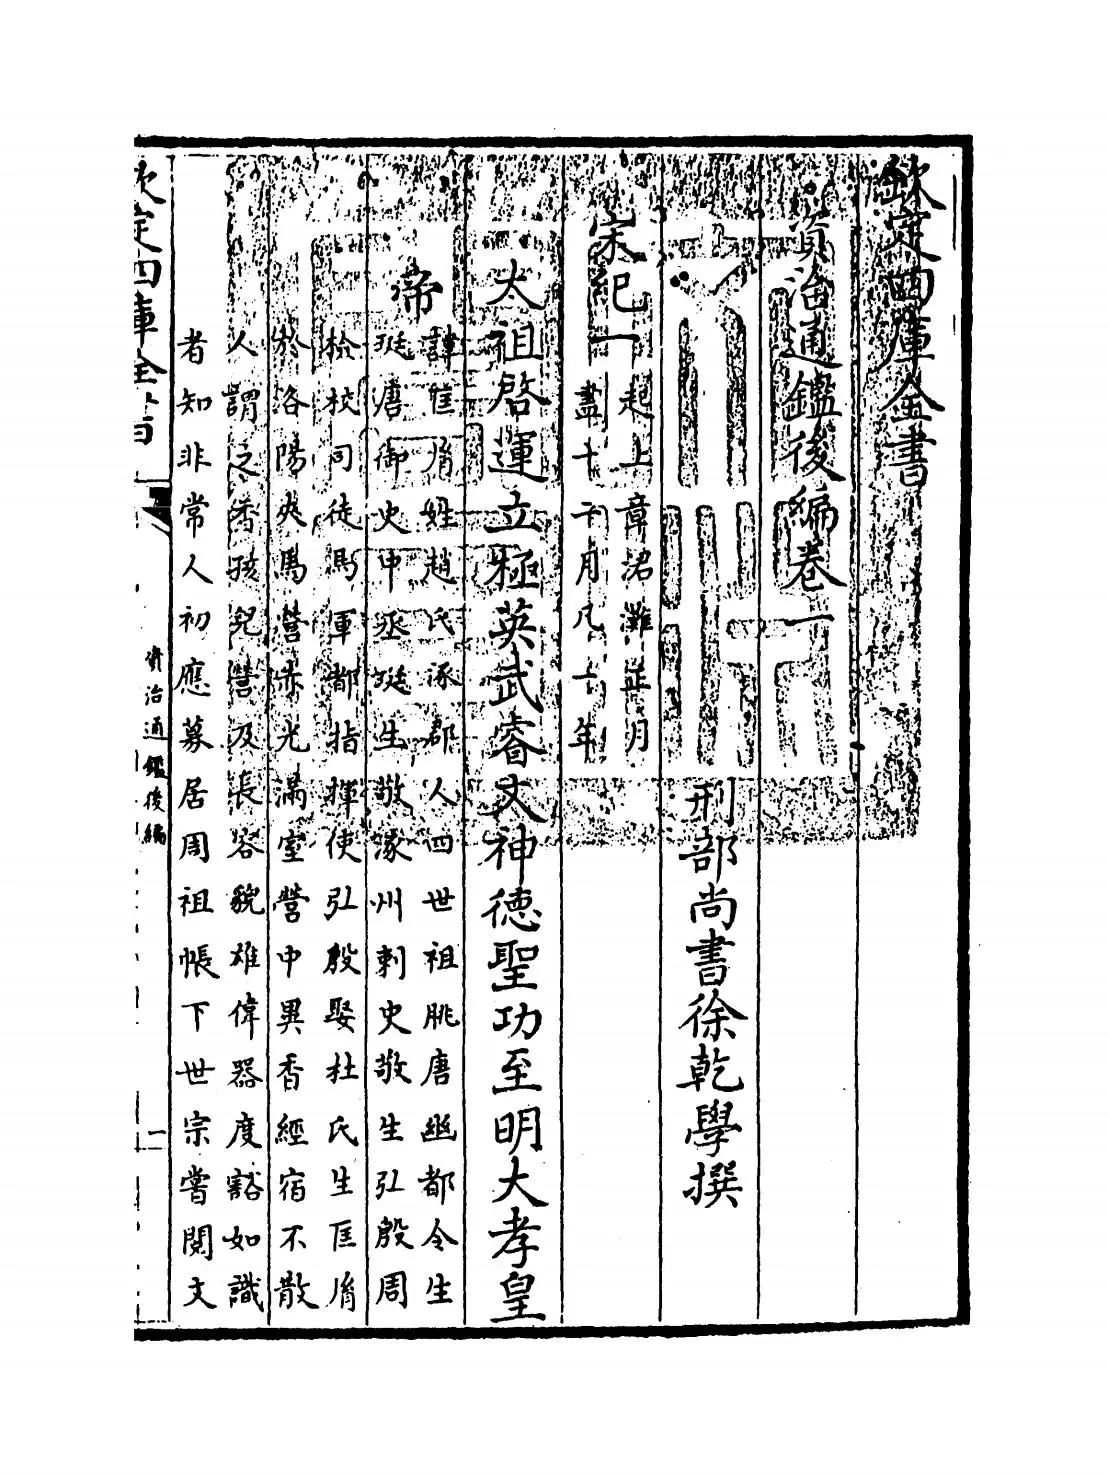 欽定四庫全書
資治通鑑後編卷一
刑部尚書徐乾學撰
宋紀一
起上章涒灘正月
盡十二月凡一年
太祖啓運立極英武睿文神德聖功至明大孝皇
帝
諱匡胤姓趙氏涿郡人四世祖朓唐幽都令生
珽唐御史中丞珽生敬涿州刺史敬生弘殷周
檢校司徒馬軍都指揮使弘殷娶杜氏生匡胤
於洛陽夾馬營赤光滿室營中異香經宿不散
人謂之香孩兒營及長容貌雄偉器度豁如識
者知非常人初應募居周祖帳下世宗嘗閱文
欽定四庫全書
資治通鑑後編
一